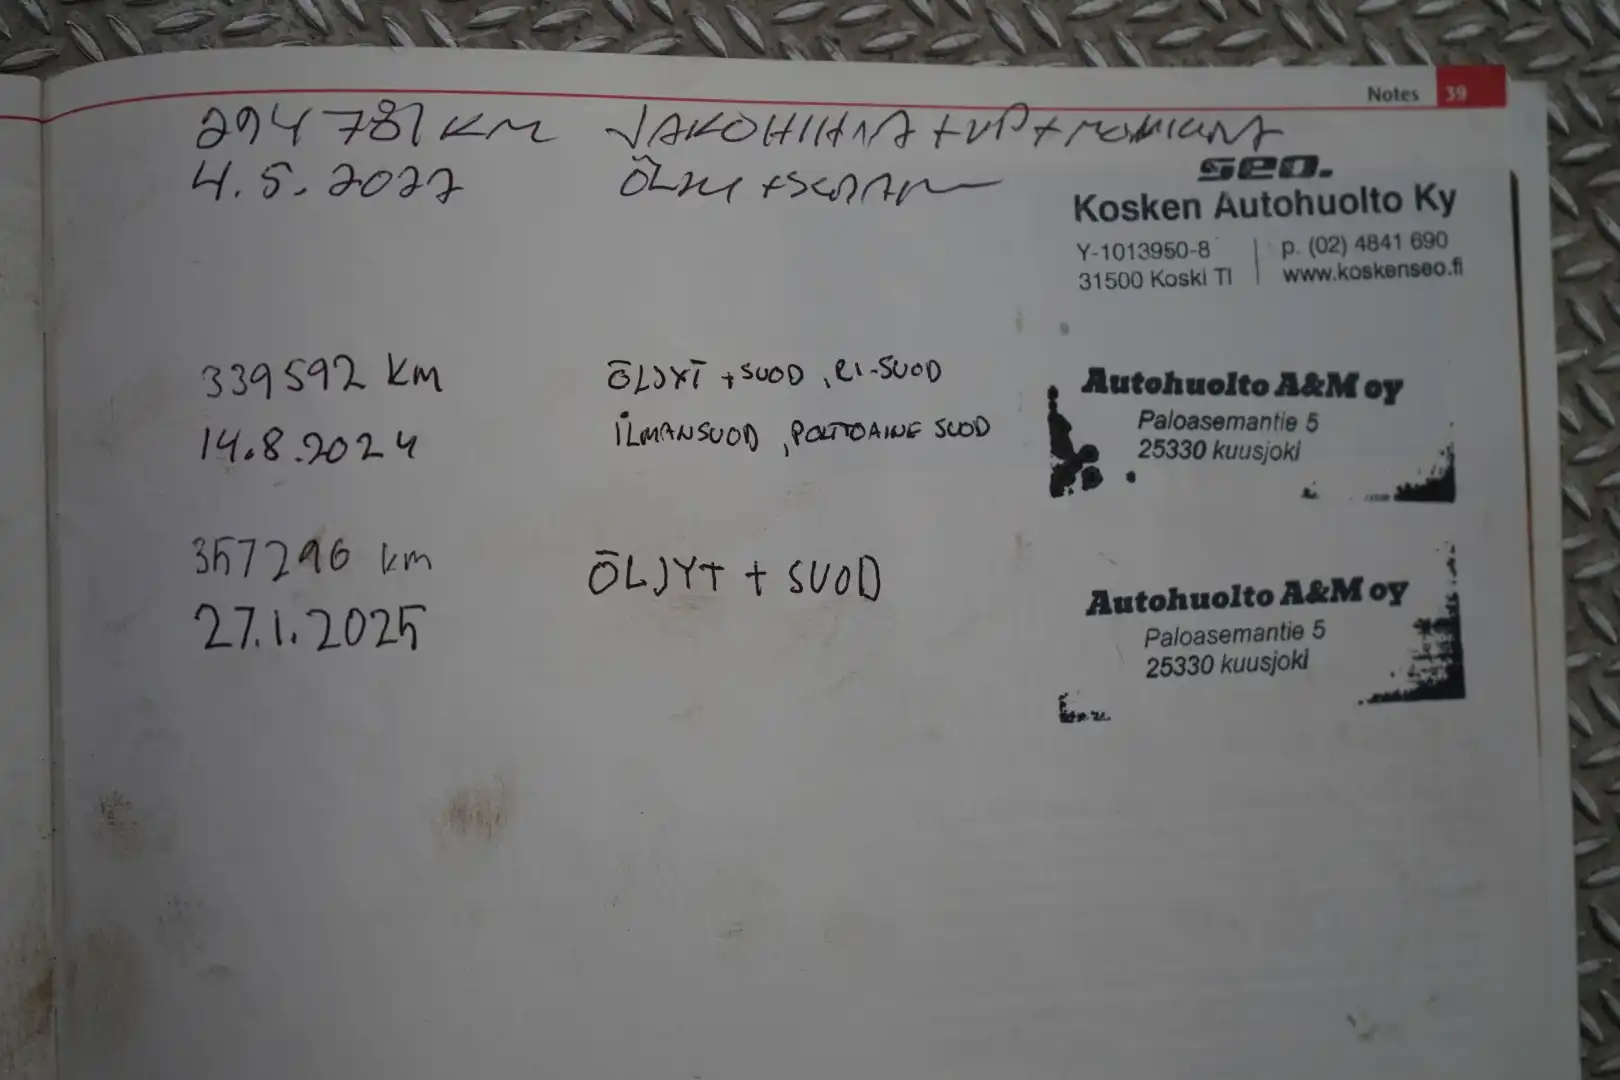 Notes 39
294 781 KM JAKOHIHNA + VP + MONIURA
4.5.2022 ÖLJY +
seo.
Kosken Autohuolto Ky
Y-1013950-8 p. (02) 4841 690
31500 Koski Tl www.koskenseo.fi
339592 km ÖLJYT + SUOD, RI-SUOD
14.8.2024 İLMANSUOD, POLTTOAINE SUOD
Autohuolto A&M oy
Paloasemantie 5
25330 kuusjoki
357296 km ÖLJYT + SUOD
27.1.2025
Autohuolto A&M oy
Paloasemantie 5
25330 kuusjoki